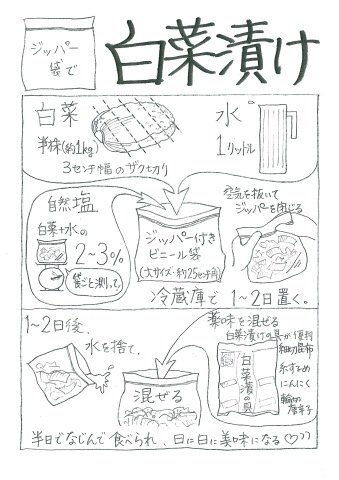 ジッパー
袋で
白菜漬け
白菜
半株(約1kg)
3センチ幅のザク切り
水
1リットル
自然塩
白菜+水の
2~3%
袋ごと測って
ジッパー付き
ビニール袋
(大サイズ・約25センチ角)
空気を抜いて
ジッパーを閉じる
冷蔵庫で1~2日置く。
1~2日後、
水を捨て、
混ぜる
薬味を混ぜる
白菜漬けの具が便利
白菜漬の具
細切昆布
糸するめ
にんにく
輪切
唐辛子
半日でなじんで食べられ、日に日に美味になる♡〃